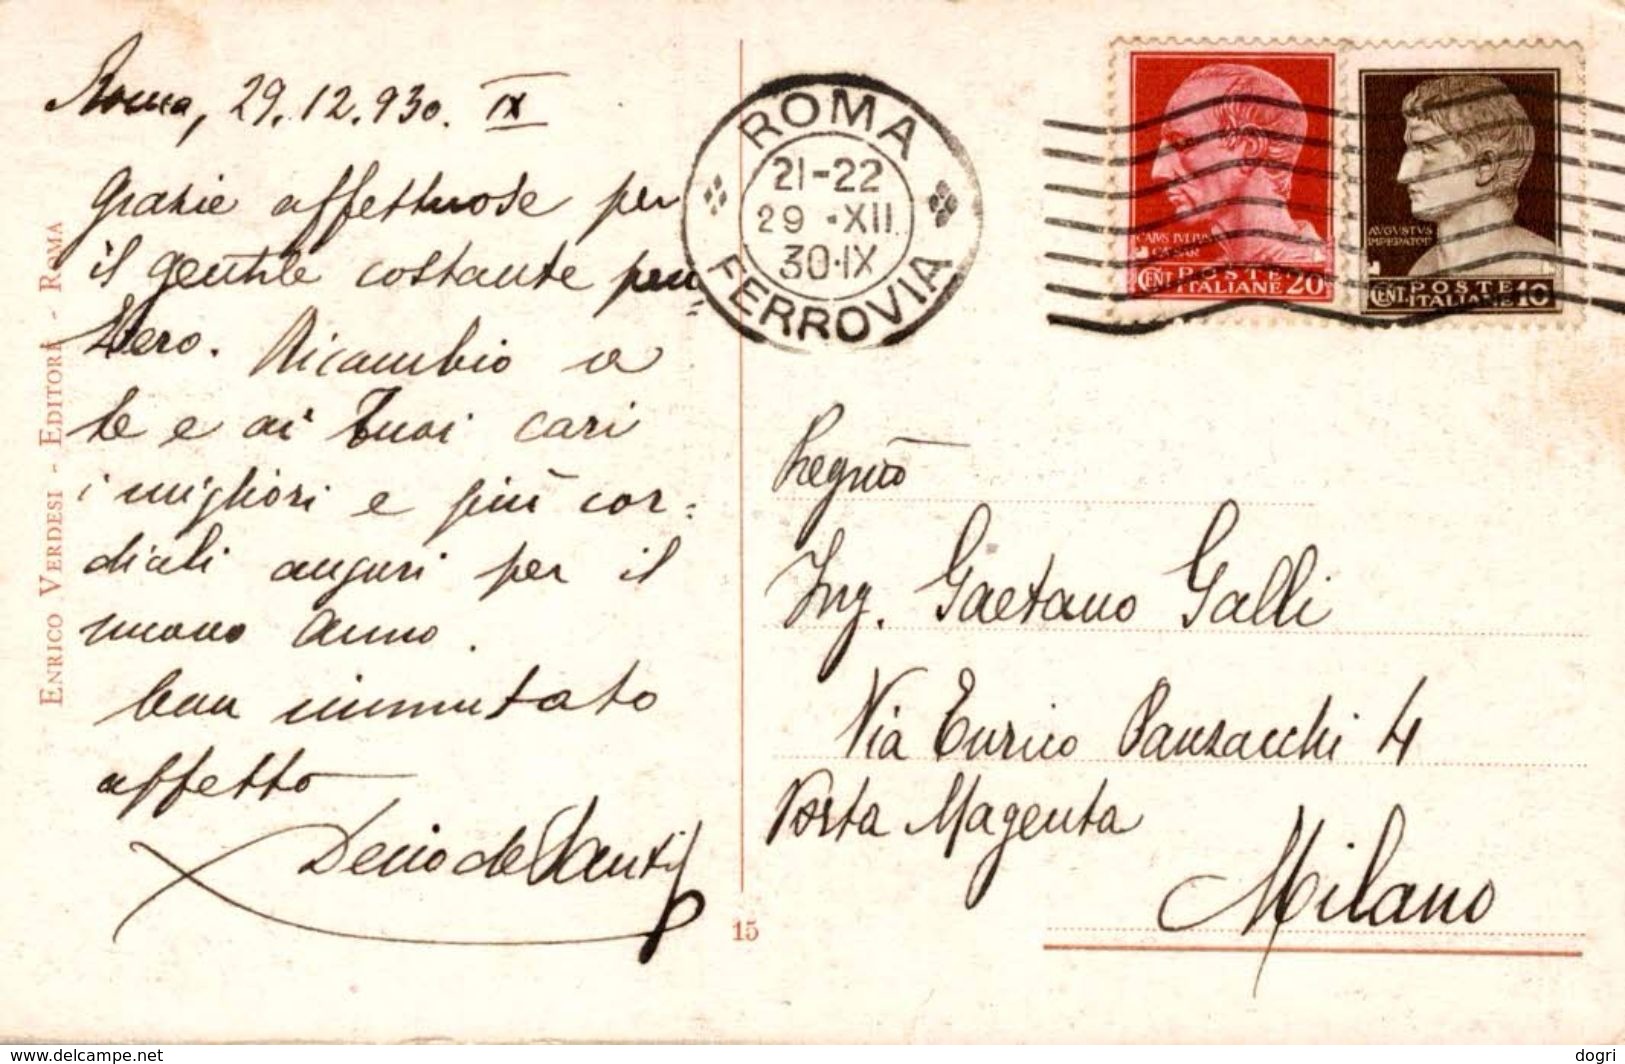 Roma, 29.12.930. IX
Grazie affettuose per
il gentile costante pen=
siero. Ricambio a
te e ai Tuoi cari
i migliori e più cor=
diali auguri per il
nuovo Anno.
Con immutato
affetto
Decio de Santis
ENRICO VERDESI - EDITORE - ROMA
15
ROMA
21-22
29·XII
30·IX
FERROVIA
CAIVS IVLIVS
CAESAR
CENT. POSTE ITALIANE 20
AVGVSTVS
IMPERATOR
CENT. POSTE ITALIANE 10
Ing. Gaetano Galli
Via Enrico Panzacchi 4
Porta Magenta
Milano
www.delcampe.net
dogri